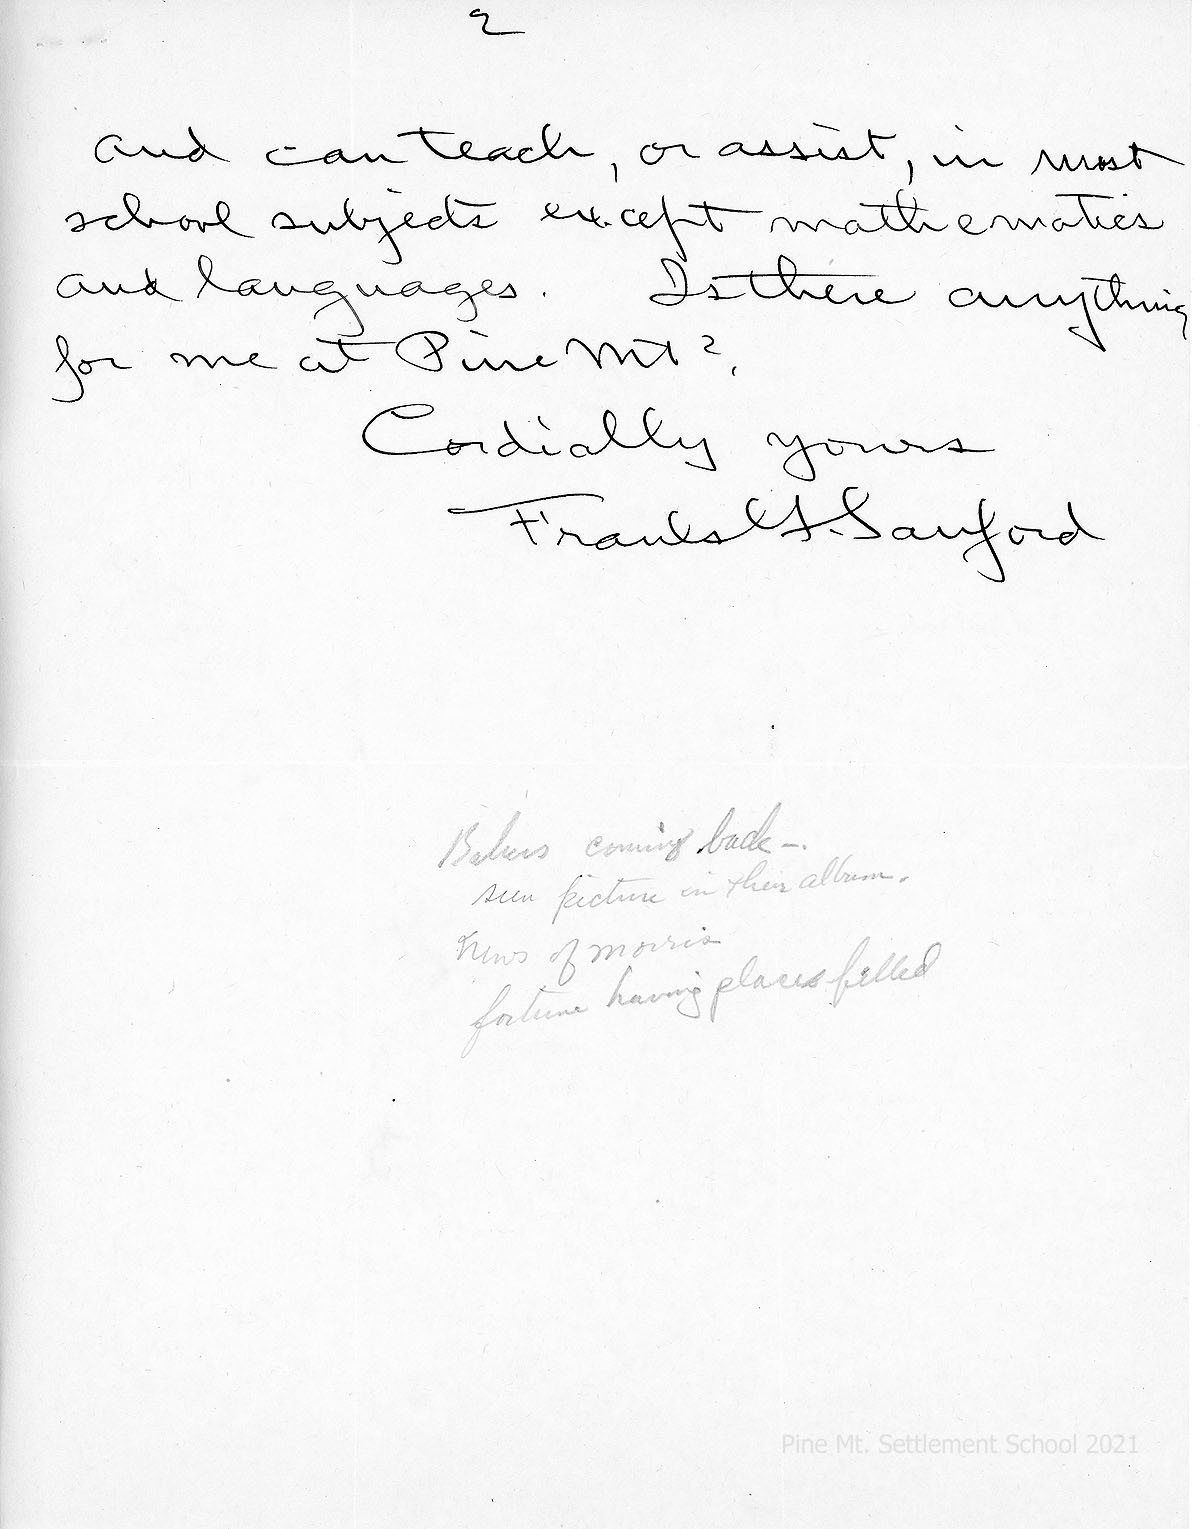 2
and can teach, or assist, in most
school subjects except mathematics
and languages. Is there anything
for me at Pine Mt?
Cordially yours
Sanford
coming back -.
seen picture in their album.
News of Morris
fortune having places filled
Pine Mt. Settlement School 2021